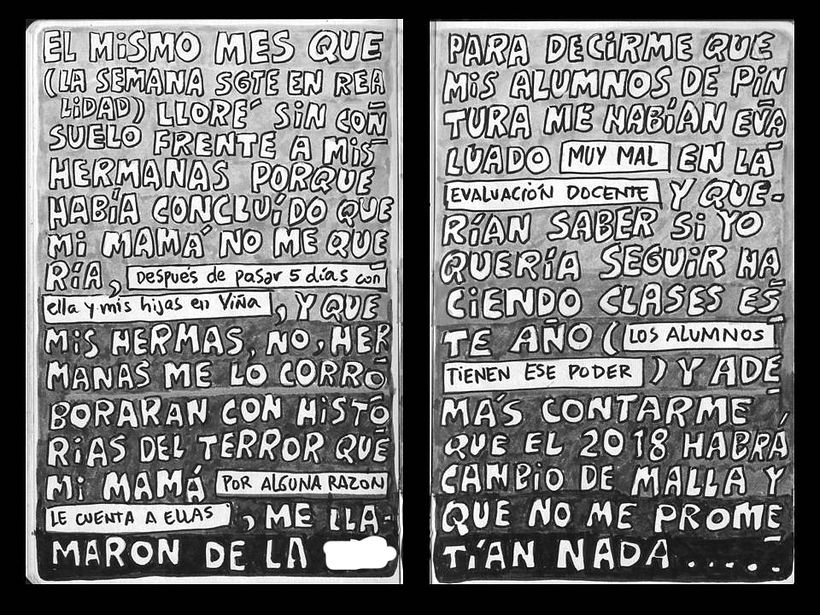 EL MISMO MES QUE
(LA SEMANA SGTE EN REA
LIDAD) LLORE´ SIN CON
SUELO FRENTE A MIS
HERMANAS PORQUE
HABÍA CONCLUÍDO QUE
MI MAMÁ NO ME QUE
RÍA, Después de pasar 5 días con
ella y mis hijas en Viña, Y QUE
MIS HERMAS, NO, HER
MANAS ME LO CORRO
BORARAN CON HISTO
RIAS DEL TERROR QUE
MI MAMÁ POR ALGUNA RAZON
LE CUENTA A ELLAS, ME LLA-
MARON DE LA
PARA DECIRME QUE
MIS ALUMNOS DE PIN
TURA ME HABÍAN EVA
LUADO MUY MAL EN LA
EVALUACIÓN DOCENTE Y QUE-
RÍAN SABER SI YO
QUERÍA SEGUIR HA
CIENDO CLASES ES
TE AÑO (LOS ALUMNOS
TIENEN ESE PODER) Y ADE
MÁS CONTARME
QUE EL 2018 HABRÁ
CAMBIO DE MALLA Y
QUE NO ME PROME
TÍAN NADA.....